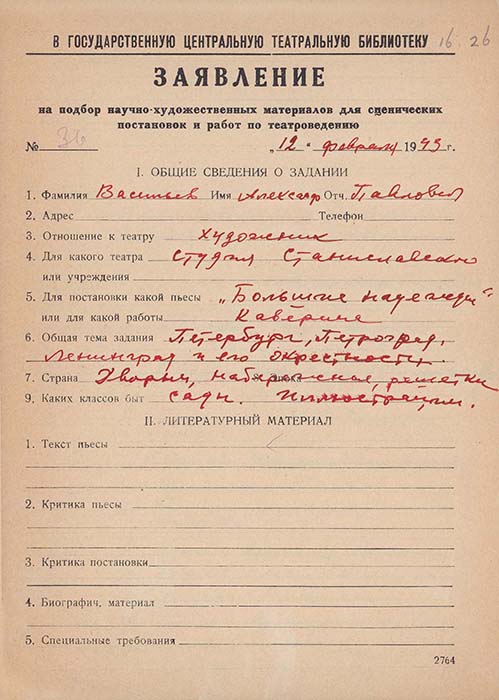 В ГОСУДАРСТВЕННУЮ ЦЕНТРАЛЬНУЮ ТЕАТРАЛЬНУЮ БИБЛИОТЕКУ 16. 26
ЗАЯВЛЕНИЕ
на подбор научно-художественных материалов для сценических
постановок и работ по театроведению
№ 36 „12“ февраля 1943 г.
I. ОБЩИЕ СВЕДЕНИЯ О ЗАДАНИИ
1. Фамилия Васильев Имя Александр Отч. Павлович
2. Адрес Телефон
3. Отношение к театру художник
4. Для какого театра Студия Станиславского
или учреждения
5. Для постановки какой пьесы „Большие надежды“
или для какой работы Каверина
6. Общая тема задания Петербург, Петроград,
Ленинград и его окрестности.
7. Страна Дворцы, набережная, решетки
9. Каких классов быт сады. Иллюстрации.
II. ЛИТЕРАТУРНЫЙ МАТЕРИАЛ
1. Текст пьесы
2. Критика пьесы
3. Критика постановки
4. Биографич. материал
5. Специальные требования
2764